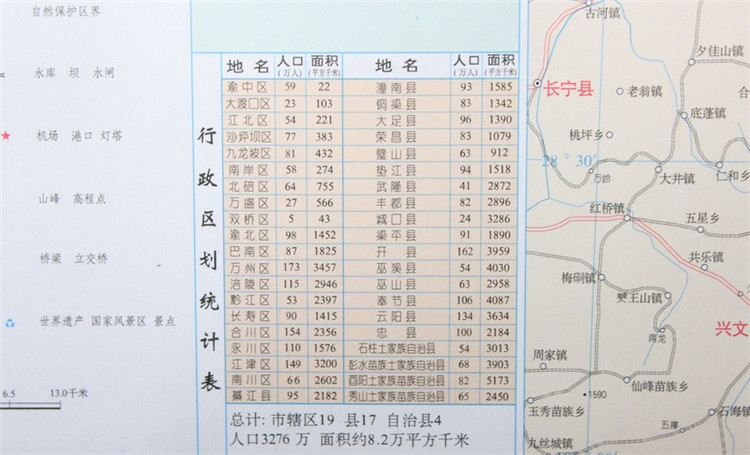 自然保护区界
水库 坝 水闸
机场 港口 灯塔
山峰 高程点
桥梁 立交桥
世界遗产 国家风景区 景点
6.5 13.0千米
行政区划统计表
地名 人口(万人) 面积(平方千米) 地名 人口(万人) 面积(平方千米)
渝中区 59 22 潼南县 93 1585
大渡口区 23 103 铜梁县 83 1342
江北区 54 221 大足县 96 1390
沙坪坝区 77 383 荣昌县 83 1079
九龙坡区 81 432 璧山县 63 912
南岸区 58 274 垫江县 94 1518
北碚区 64 755 武隆县 41 2872
万盛区 27 566 丰都县 82 2896
双桥区 5 43 城口县 24 3286
渝北区 98 1452 梁平县 91 1890
巴南区 87 1825 开县 162 3959
万州区 173 3457 巫溪县 54 4030
涪陵区 115 2946 巫山县 63 2958
黔江区 53 2397 奉节县 106 4087
长寿区 90 1415 云阳县 134 3634
合川区 154 2356 忠县 100 2184
永川区 110 1576 石柱土家族自治县 54 3013
江津区 149 3200 彭水苗族土家族自治县 68 3903
南川区 66 2602 酉阳土家族苗族自治县 82 5173
綦江县 95 2182 秀山土家族苗族自治县 65 2450
总计: 市辖区19 县17 自治县4
人口3276 万 面积约8.2万平方千米
古河镇
夕佳山镇
长宁县
老翁镇
底蓬镇
桃坪乡
28°30′
万岭
大井镇
仁和乡
红桥镇
五星乡
共乐镇
梅硐镇
僰王山镇
兴文
周家镇
仙峰苗族乡
1590
玉秀苗族乡
石海镇
九丝城镇